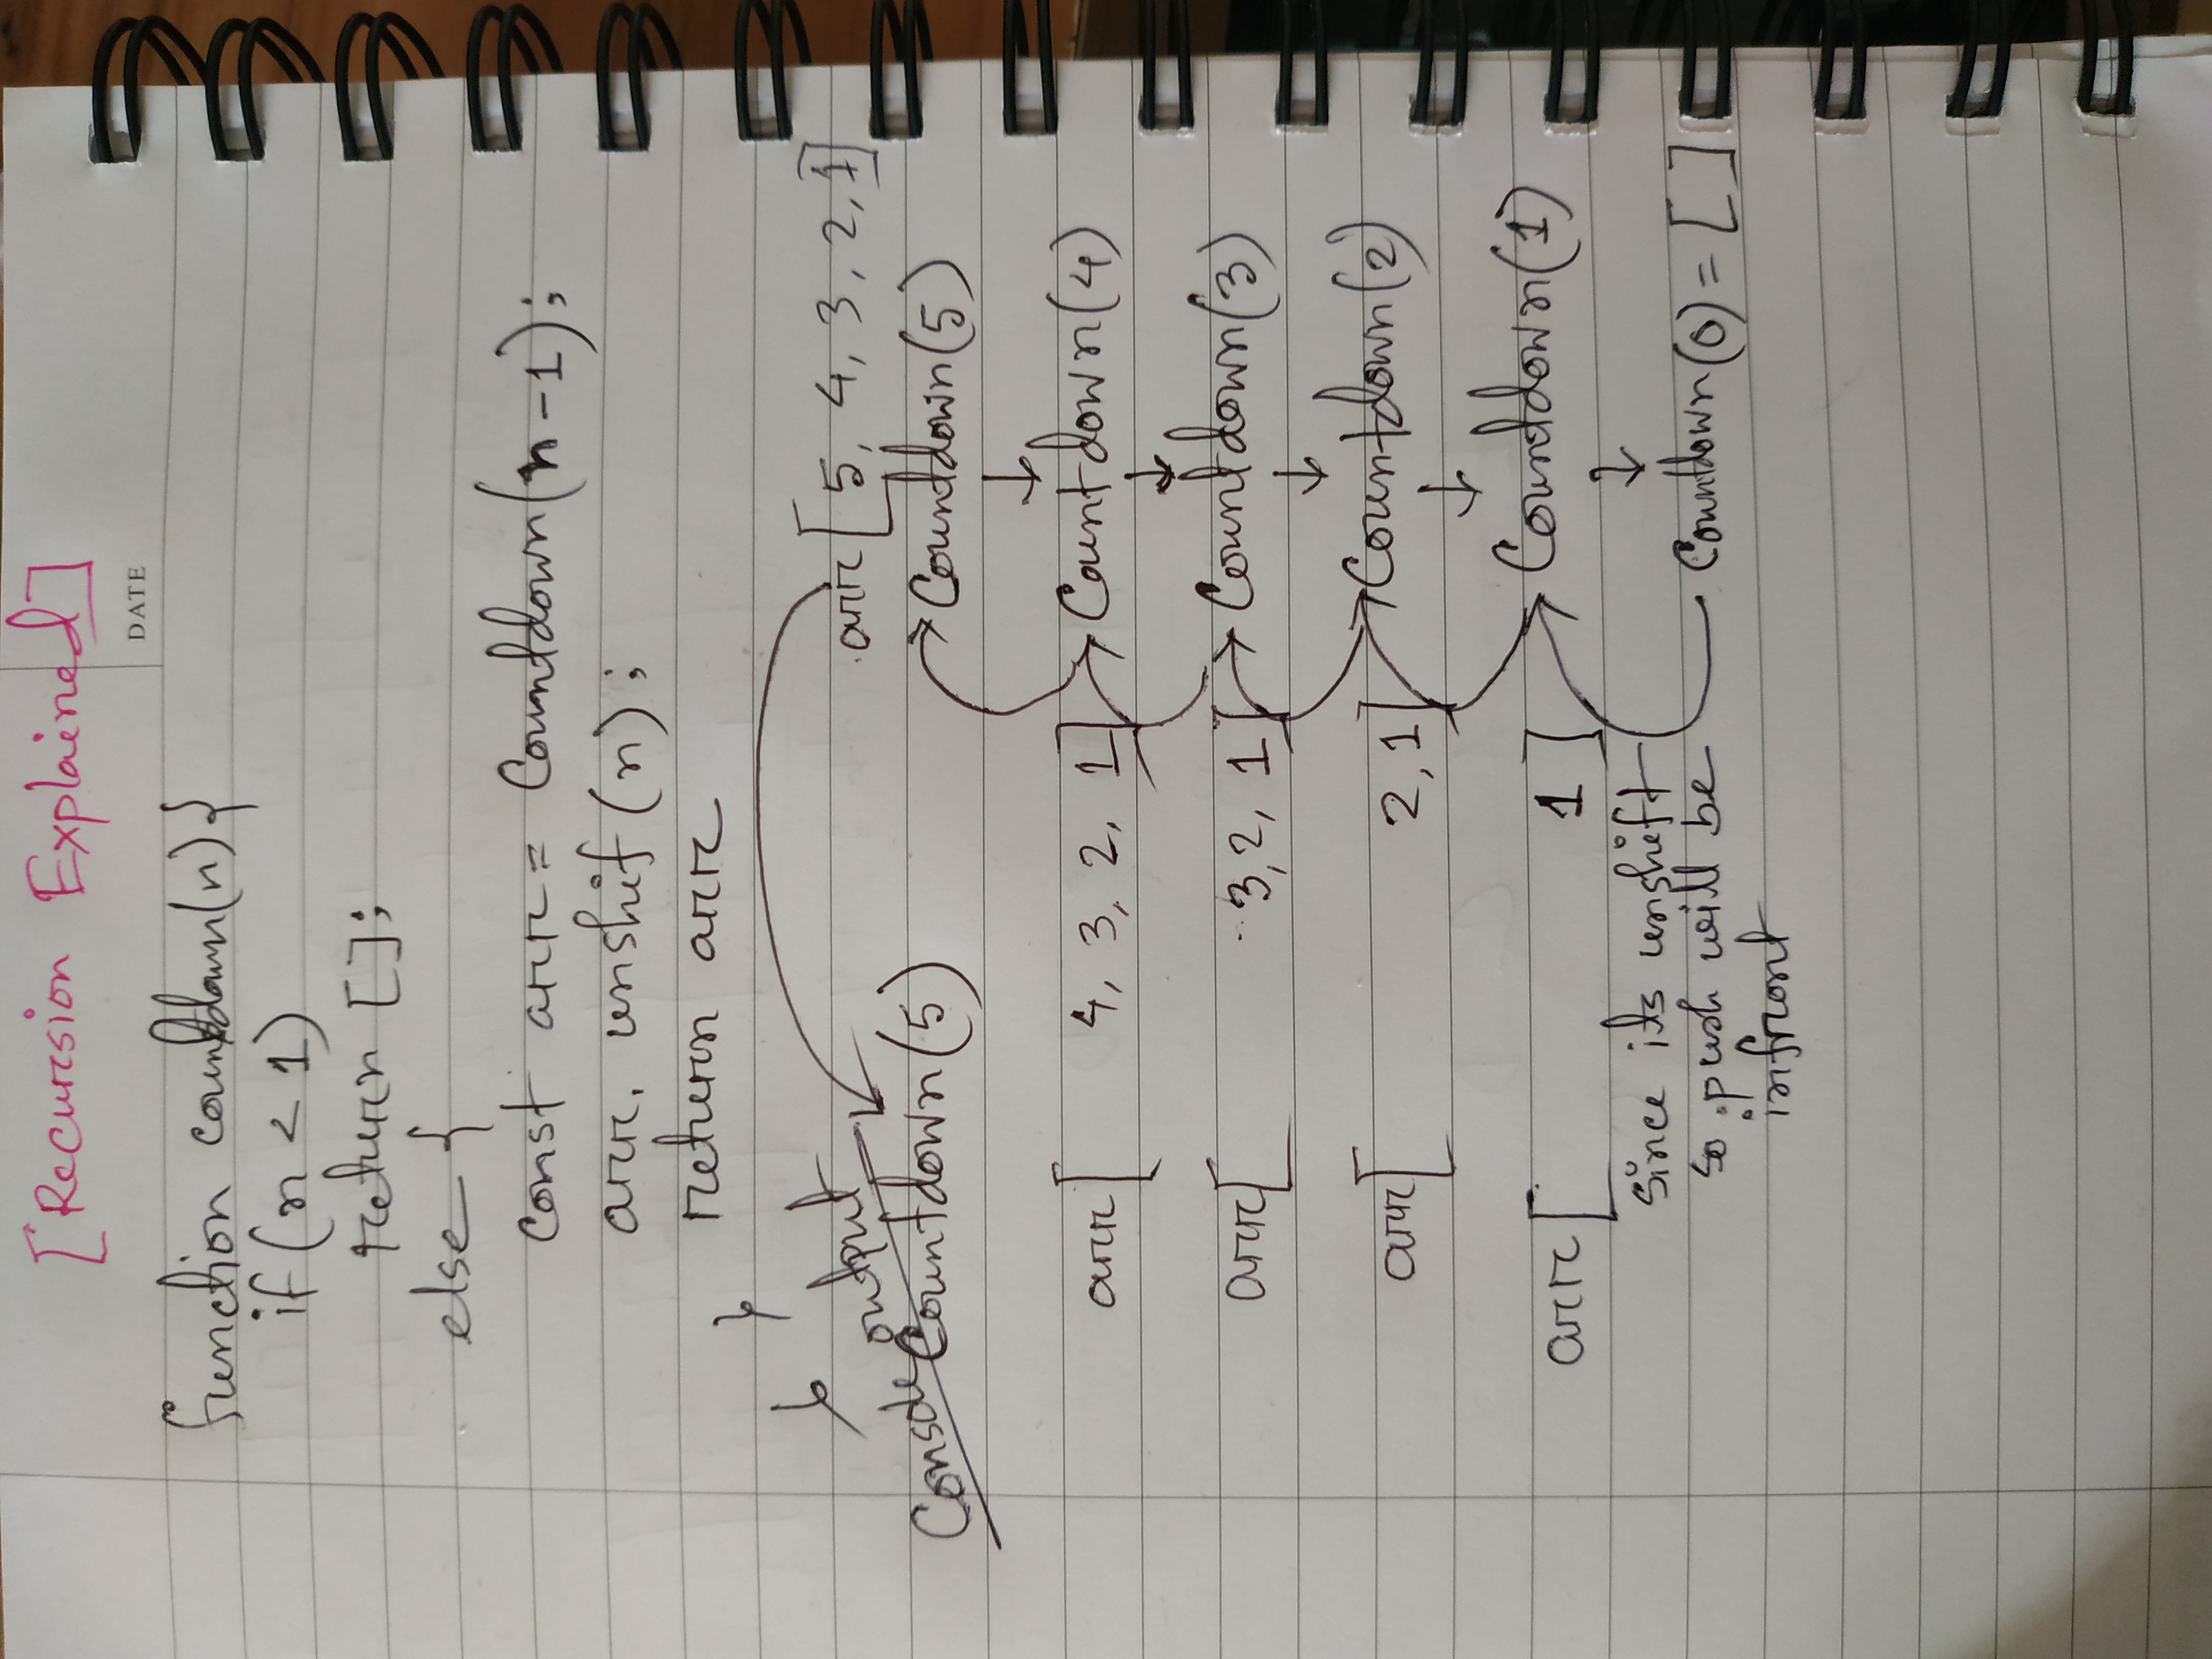 [Recursion Explained]
DATE
function countdown(n){
if (n < 1)
return [];
else {
const arr = Countdown(n-1);
arr. unshif (n);
return arr
}
}
Console output
Countdown(5)
arr [ 5, 4, 3, 2, 1]
Countdown(5)
arr [ 4, 3, 2, 1] Countdown(4)
arr [ 3, 2, 1] Countdown(3)
arr [ 2, 1] Countdown(2)
arr [ 1 ] Countdown(1)
since its unshift
so push will be Countdown(0) = [ ]
infront